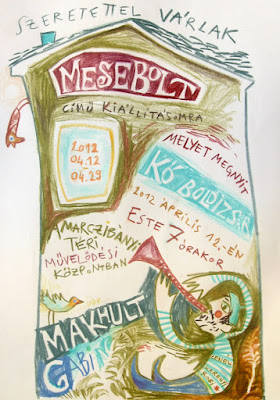 SZERETETTEL VÁRLAK
MESEBOLT
CÍMŰ KIÁLLÍTÁSOMRA
2012
04.12
-
04.29
MELYET MEGNYIT
KŐ BOLDIZSÁR
2012 ÁPRILIS 12.-ÉN
ESTE 7 ÓRAKOR
A MARCZIBÁNYI
TÉRI
MŰVELŐDÉSI
KÖZPONTBAN
MAKHULT
GABI